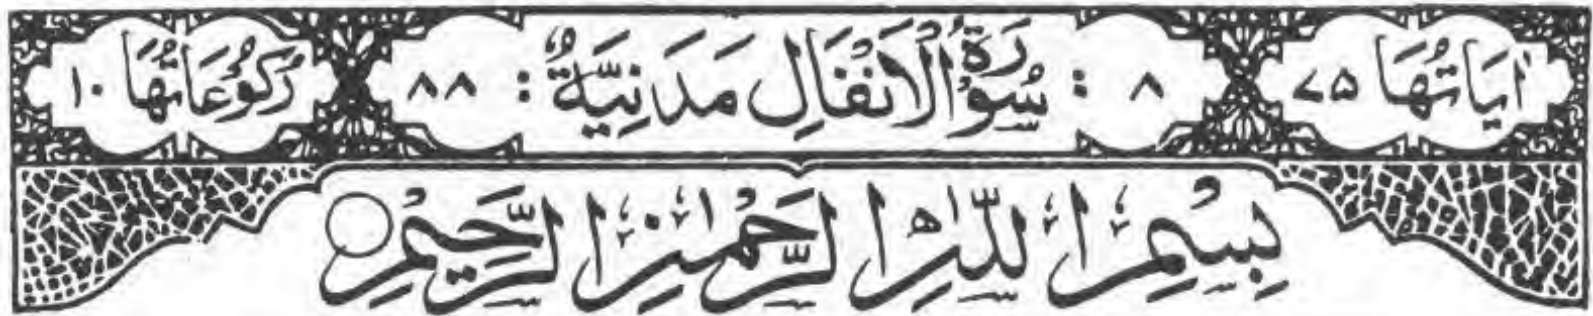 اٰیَاتُهَا ۷۵ ۸ : سُوْرَةُ الْاَنْفَالِ مَدَنِیَّةٌ : ۸۸ رُكُوْعَاتُهَا ۱۰
بِسْمِ اللّٰهِ الرَّحْمٰنِ الرَّحِیْمِ ○